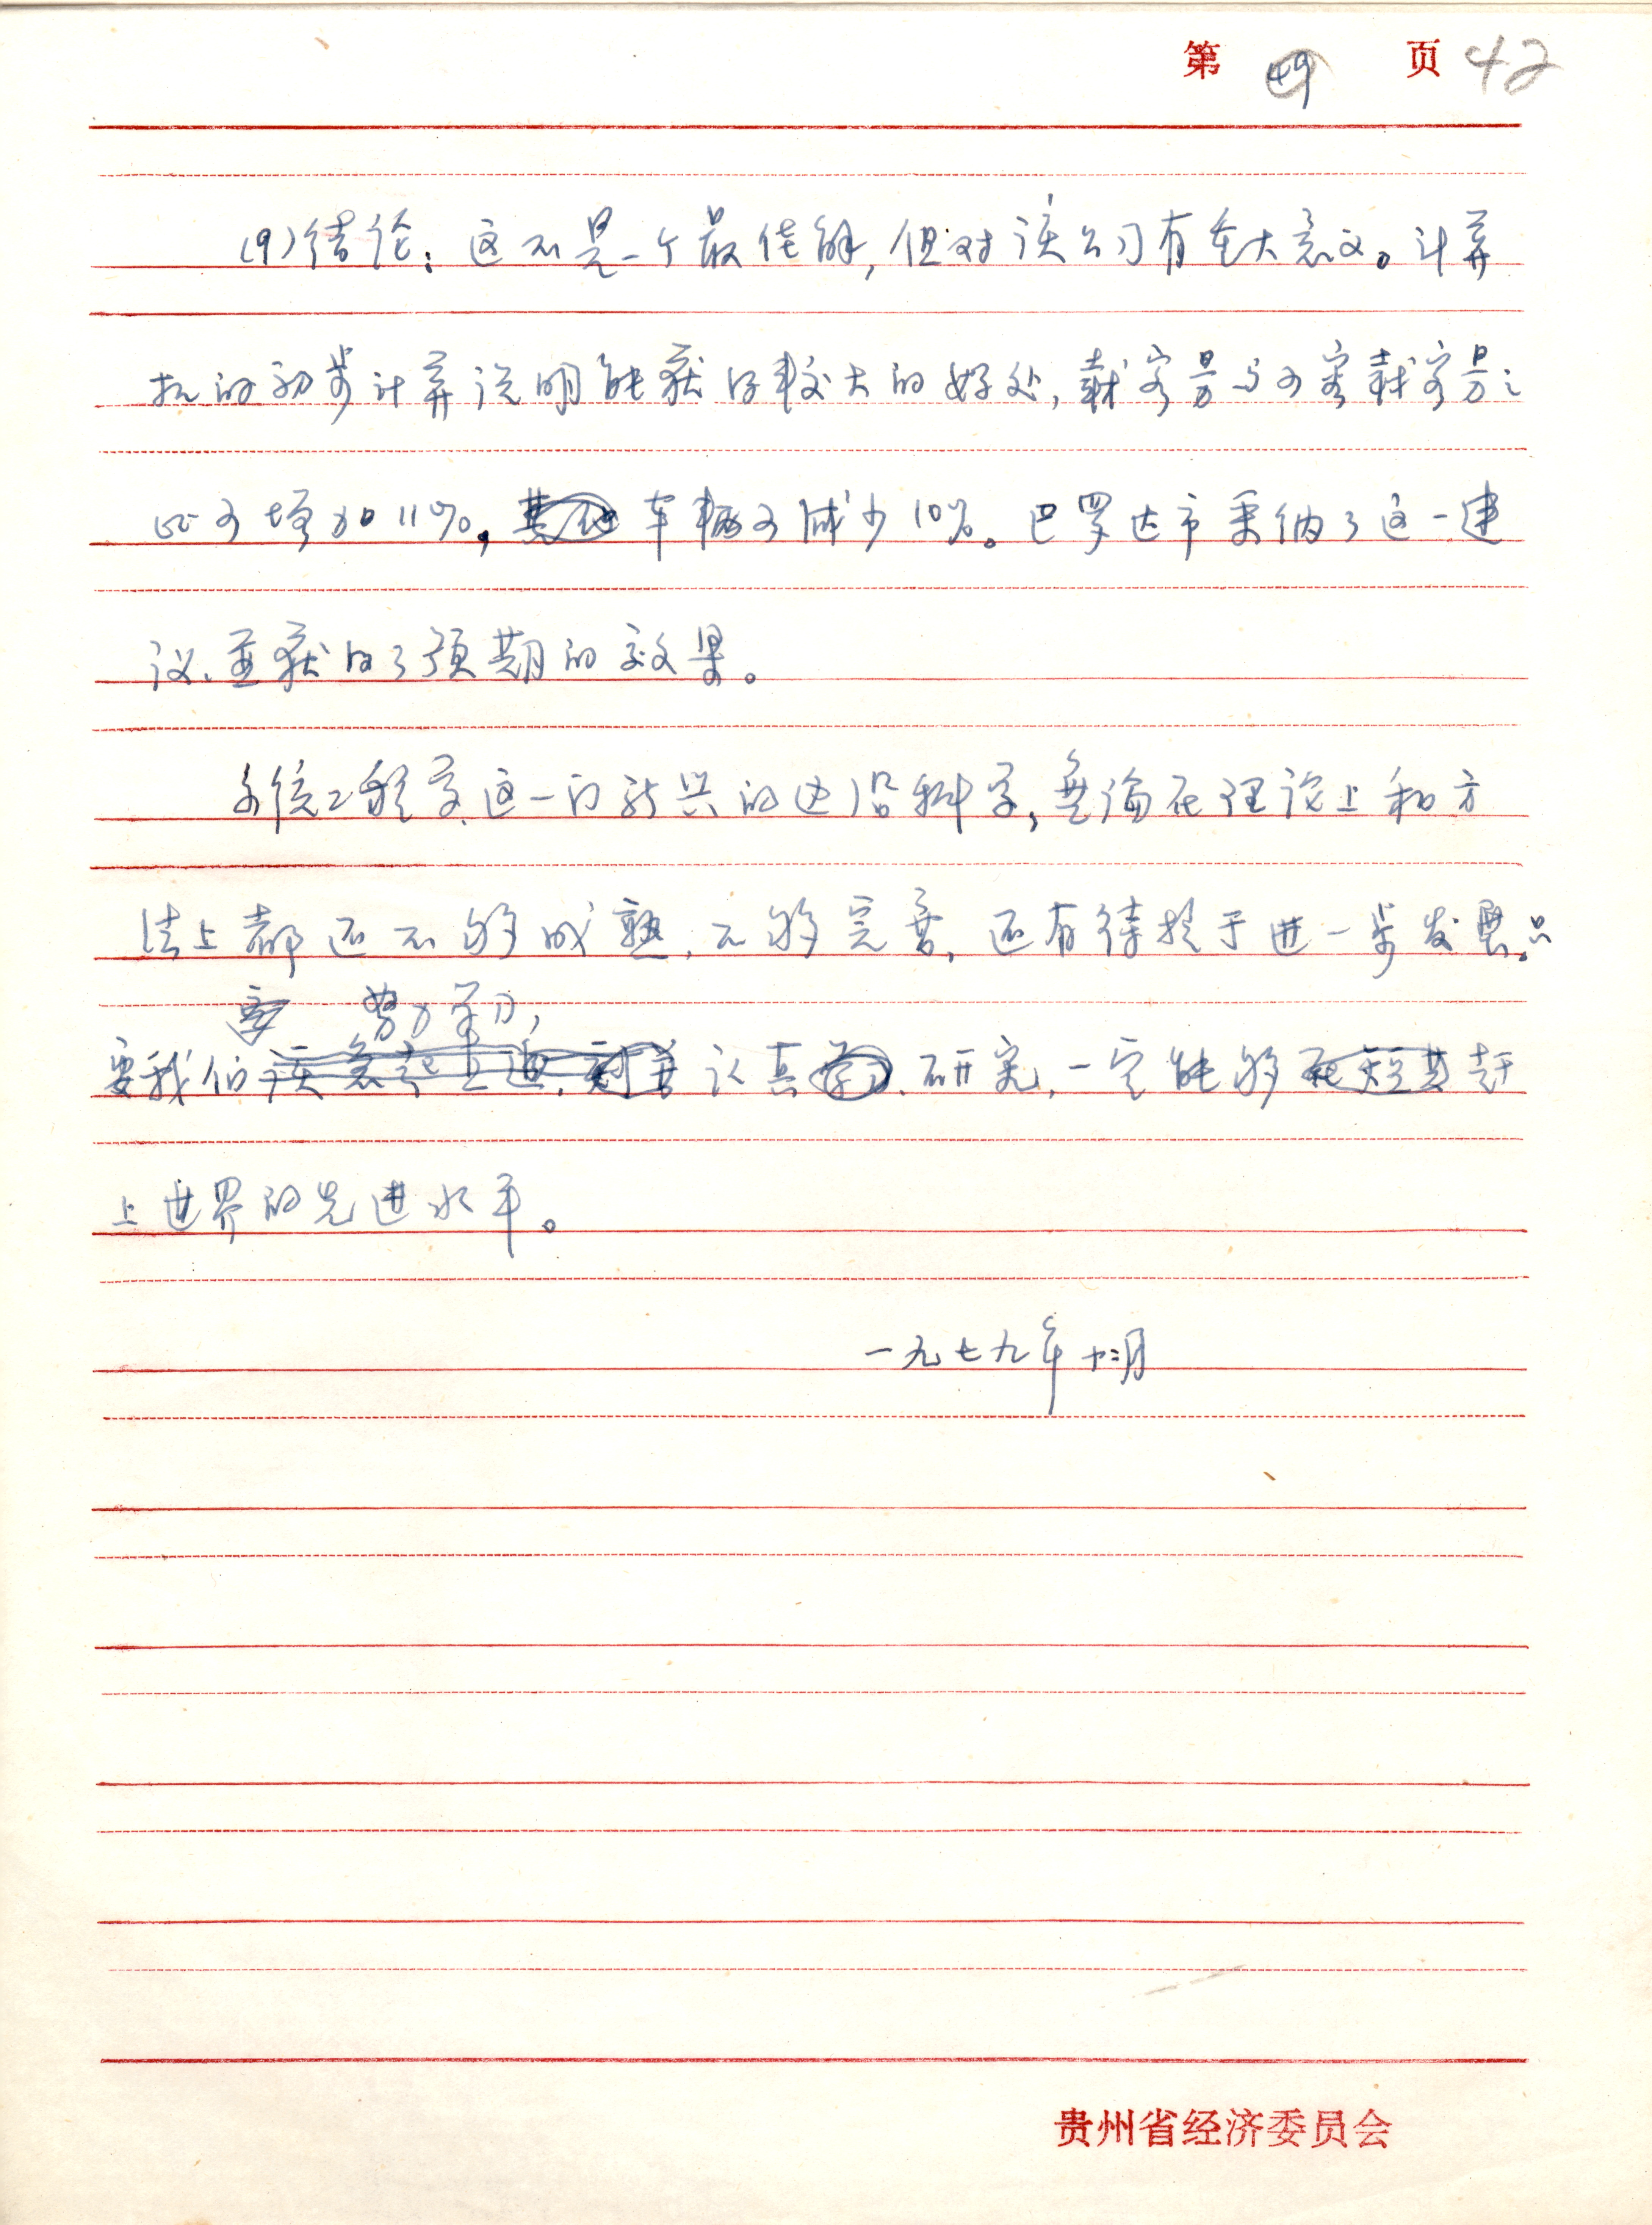 第 49 页 42
(9)结论:这不是一个最佳解,但对该公司有重大意义。计算
机的初步计算说明能获得较大的好处,载客量与可容载客量之
比可增加11%,其他车辆可减少10%。巴罗达市采纳了这一建
议、並获得了预期的效果。
系统工程学这一门新兴的边沿科学,無論在理论上和方
法上都还不够成熟,不够完善,还有待於于进一步发展。只
努力学习,
要我们该急起直追,刻苦认真学习、研究,一定能够在短期赶
上世界的先进水平。
一九七九年十二月
贵州省经济委员会